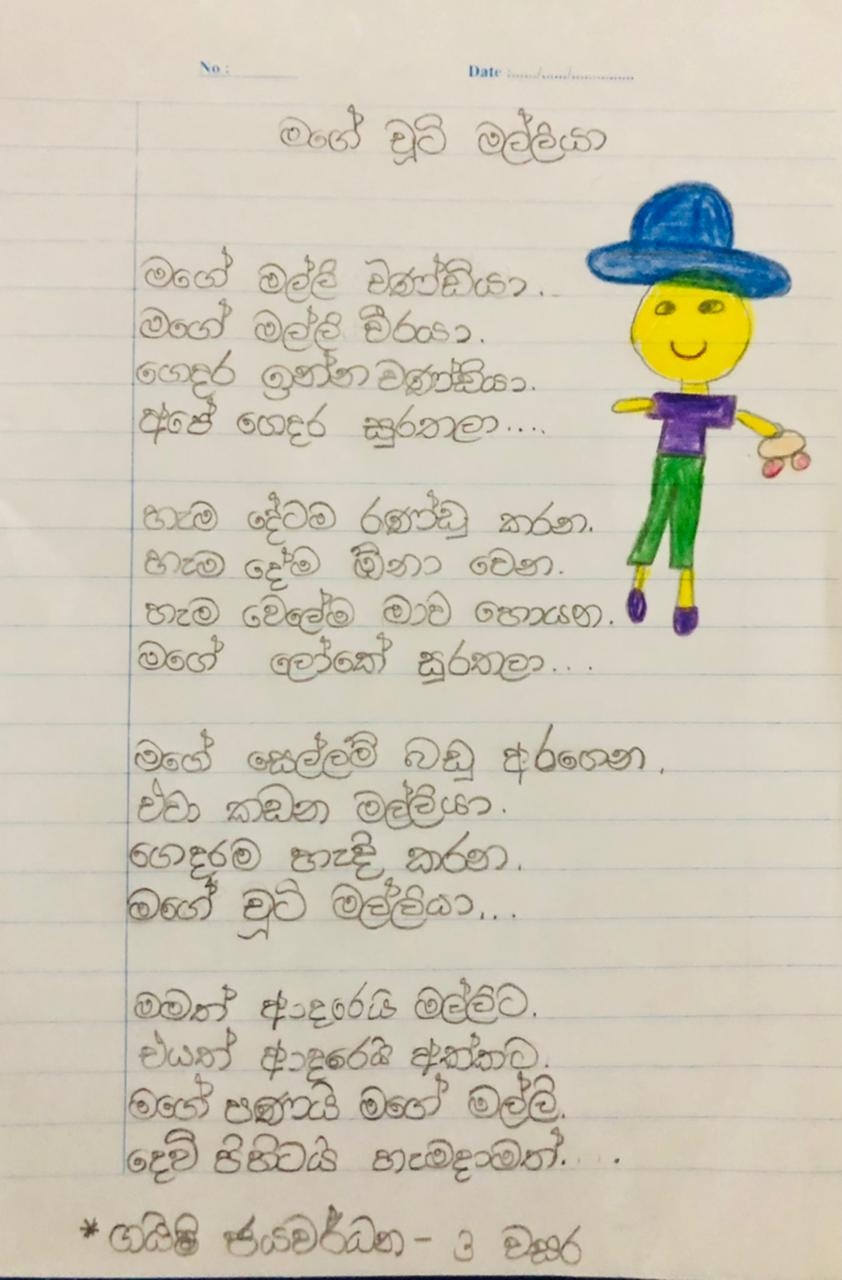 No :
Date :....../....../..............
මගේ චූටි මල්ලියා
මගේ මල්ලි චණ්ඩියා.
මගේ මල්ලි වීරයා.
ගෙදර ඉන්න චණ්ඩියා.
අපේ ගෙදර සුරතලා....
හැම දේටම රණ්ඩු කරන.
හැම දේම ඕනා වෙන.
හැම වෙලේම මාව හොයන.
මගේ ලෝකේ සුරතලා...
මගේ සෙල්ලම් බඩු අරගෙන.
ඒවා කඩන මල්ලියා.
ගෙදරම හැදි කරන.
මගේ චූටි මල්ලියා...
මමත් ආදරෙයි මල්ලිට.
එයත් ආදරෙයි අක්කට.
මගේ පණයි මගේ මල්ලි.
දෙවි පිහිටයි හැමදාමත්....
* ජයවර්ධන - 3 වසර